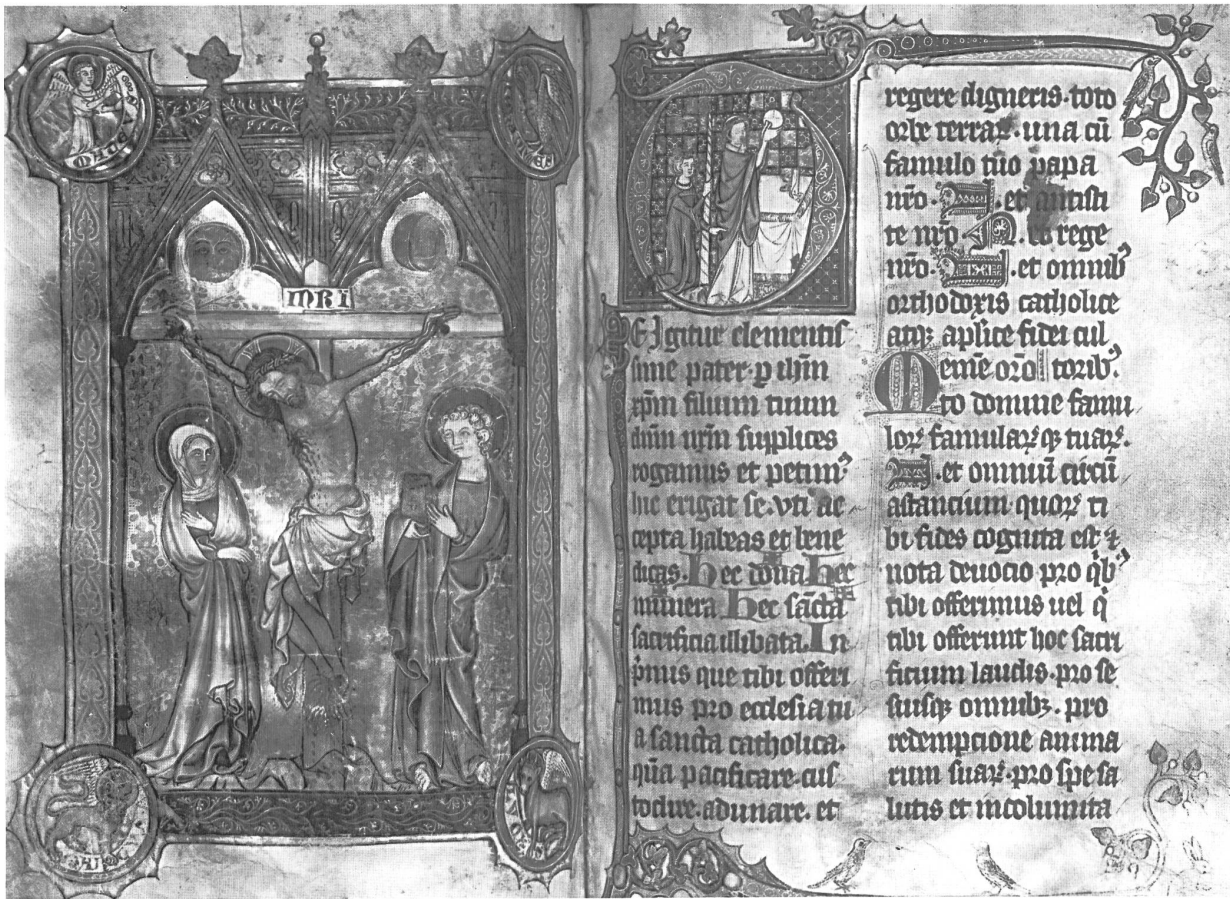 INRI
E Igitur clementis
sime pater· p ihm
xpm filium tuum
dnm nrm suplices
rogamus et petimꝰ
hic erigat se· vti ac
cepta habeas et bene
dicas· hec dona hec
munera hec sc̄a
sacrificia illibata· In
pmis que tibi offeri
mus pro ecclesia tu
a sancta catholica·
q̄a pacificare· cus
todire· adunare· et
regere digneris· toto
orbe terraꝝ· una cū
famulo tuo papa
nr̄o· N· et antisti
te nr̄o· N· et rege
nr̄o· N· et omnibꝰ
orthodoxis catholice
atqꝫ aplice fidei cul
Meme oro toribꝰ·
to domine famu
loꝝ famulaꝝ qꝫ tuaꝝ·
N· et omniū circū
astancium· quoꝝ ti
bi fides cognita est ⁊
nota deuocio pro qͥbꝰ
tibi offerimus uel qͥ
tibi offerunt hoc sacri
ficium laudis· pro se
suisqꝫ omnibꝫ· pro
redempcione anima
rum suaꝝ· pro spe sa
lutis et incolumita